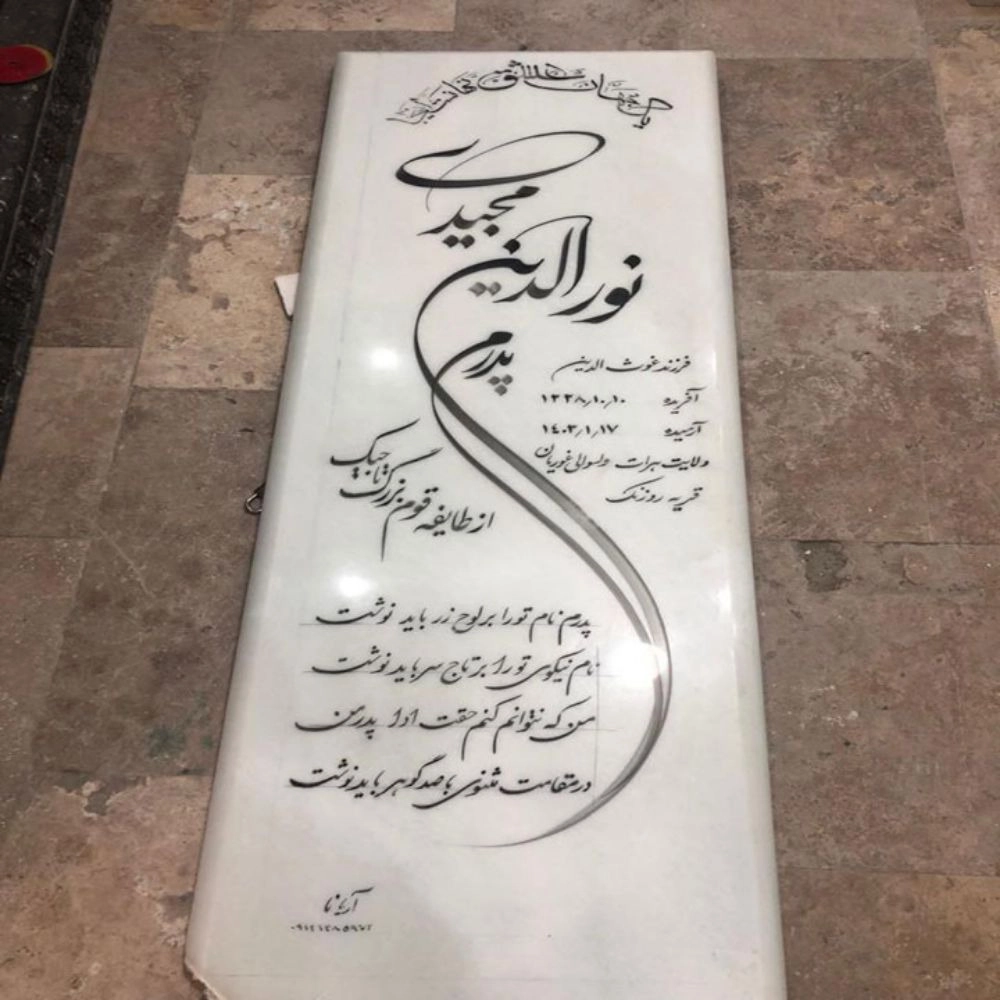 یک جهان عشق نهانست اینجا
پدرم
نورالدین مجیدی
فرزند غوث الدین
آفریده ۱۳۳۸/۱۰/۱۰
آرمیده ۱۴۰۳/۱/۱۷
ولایت هرات ولسوالی غوریان
قریه روزنک
از طایفه قوم بزرگ تاجیک
پدرم نام تو را بر لوح زر باید نوشت
نام نیکوی تو را بر تاج سر باید نوشت
من که نتوانم کنم حقت ادا پدر من
در مقامت مثنوی با صد گوهر باید نوشت
آریانا